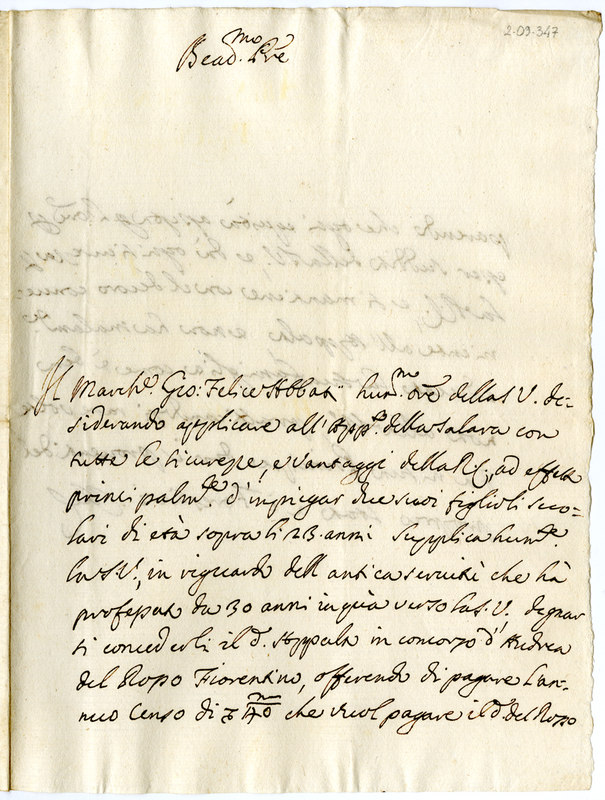 2.09.347
Bead.mo Pre
Il March.e Gio: Felice Abbati hum.mo ore della S.V. de-
siderando applicare all'App.to della Salara con
tutte le sicurezze, e vantaggi della R.C, ad effetto
principalm.te d'impiegar due suoi figlioli seco-
lari di età sopra li 23 anni supplica hum.te
la S.V., in riguardo dell'antica servitù che hà
professata da 30 anni in quà verso la S.V, degnar
si concederli il d.o Appalto in concorso d'Andrea
del Rosso Fiorentino, offerendo di pagare l'an-
nuo Censo di che vuol pagare il d.o del Rosso